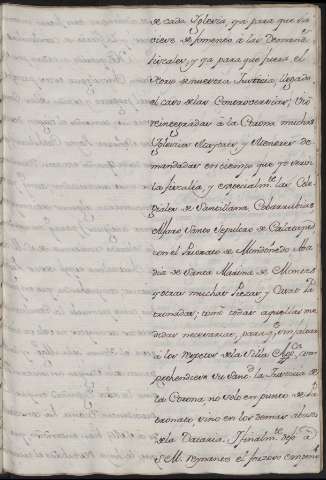 de cada Iglesia, ya para que sir
viese de fomento à las Demandas
fiscales, y ya para que fuera el
Apoyo de nuestra Justicia, llegado
el caso de las Controversias; vió
reintegradas à la Corona muchas
Iglesias mayores, y menores de
mandadas en tiempo que yo serví
la fiscalia, y especialm.te las Cole
giales de Santillana, Cobarrubias
Alfaro Santo Sepulcro de Calatayud
con el Priorato de Mondoñedo Aba
dia de Santa Marina de
y otras muchas Piezas, y Curatos Pa
tronados; como todas aquellas me
didas necesarias, para q.e
à los Nepotes de la Silla App.ca com
prehendiese su Sant.d la Justicia de
la Corona no solo en punto de Pa
tronato, sino en los demas abusos
de la Dataria. Finalm.te dejo à
S. M. el